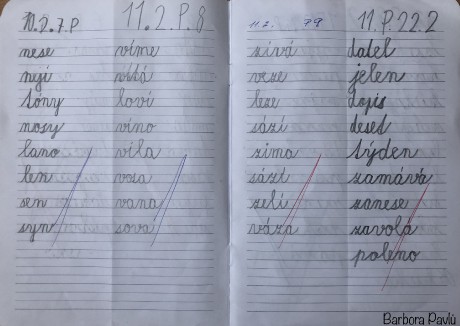 10.2.7.P
nese
nyjí
tóny
nosy
lano
len
sen
syn
11.2.P.8
víme
vítá
loví
víno
vila
vosa
vana
sova
11.2. P9
zívá
veze
leze
sází
zima
sází
zelí
váza
11.P.22.2
datel
jelen
dopis
deset
týden
zamává
zanese
zavolá
poleno
Barbora Pavlů